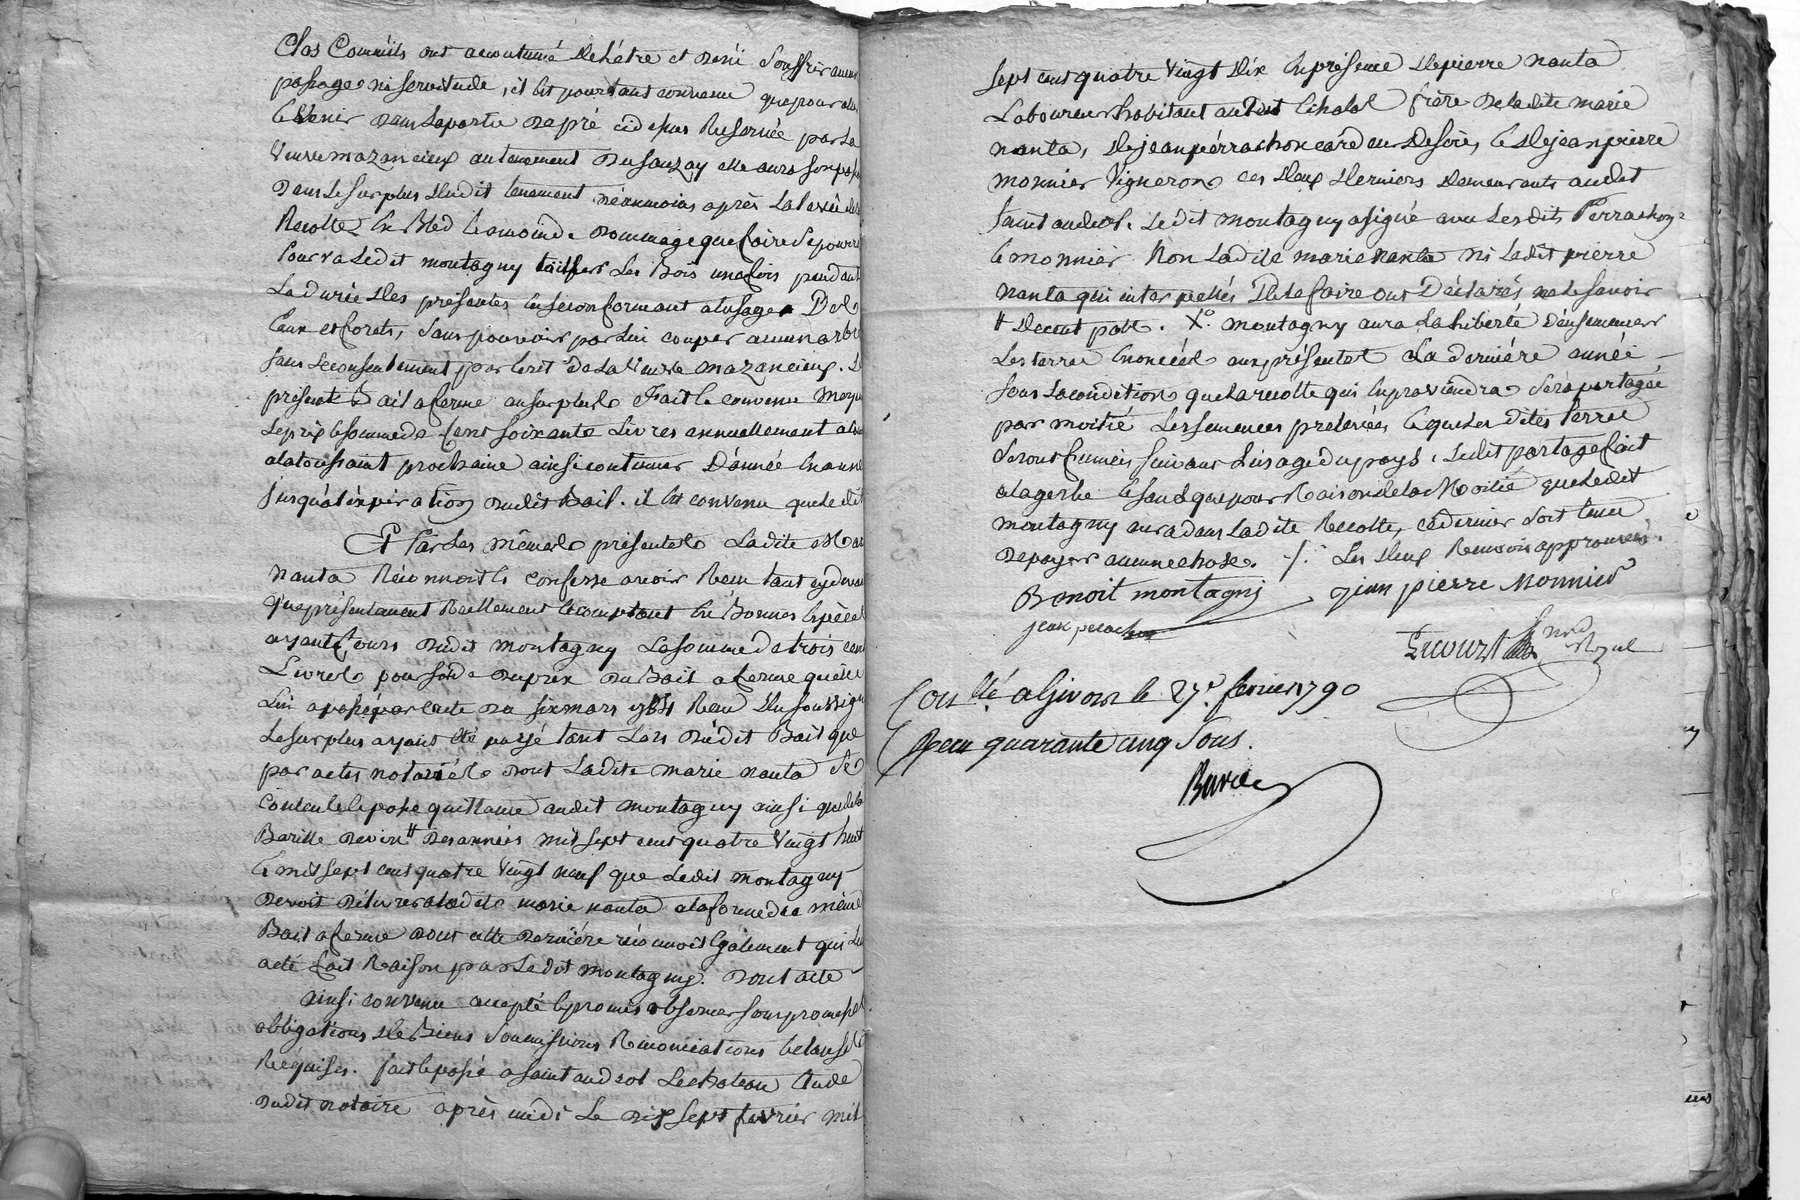 Clos Comme ils ont accoutumé de l'étre et
passage ni servitude, il Est pourtant convenu que pour
venir dans la partie de pré cidessus Reservée par La
Veuve mazancieux au tenement du Sauzay elle aura son
dans le surplus dudit tenement néanmoins après La levée de la
Recolte En Bled le moindre dommage que faire se pourra
Pourra Ledit montagny tailler Les Bois une fois pendant
La durée des présentes En se conformant a lusage Des
Eaux et forets, sans pouvoir par Lui couper aucun arbre
sans Le consentement par Ecrit de La Veuve mazancieux.
présent Bail a ferme au surplus Fait et convenu
Le prix et somme de Cent soixante Livres annuellement
a la toussaint prochaine ainsi continuer D'année En année
jusqu'à l'expiration dudit Bail. il Est convenu que Ledit
Par Les Mêmes présentes Ladite
nanta Reconnoit et confesse avoir Recu tant cydevant
que présentement Reellement et comptant En Bonnes Espèces
ayant Cours dudit montagny La somme de trois cent
Livres pour solde du prix du Bail a ferme qu'elle
Lui a passé par acte du six mars Recu du soussigné
Le surplus ayant été payé tant Lors dudit Bail que
par actes notariés dont Ladite marie nanta se
Contente et passe quittance audit montagny ainsi que de la
Barille de vin des années mil sept cent quatre Vingt huit
Et mil sept cent quatre Vingt neuf que Ledit montagny
devoit délivrer a ladite marie nanta a la forme du même
Bail a ferme dont cette Dernière reconnoit Egalement qu'il Lui
a été fait Raison par Ledit montagny. Dont acte
ainsi convenu accepté et promis observer sous promesses
obligations de Biens soumissions Renonciations et clauses
Requises. fait et passé a saint andeol Le chateau Etude
dudit notaire après midi Le dix sept fevrier mil
sept cent quatre Vingt dix En présence de pierre nanta
Laboureur habitant audit Echalas frère de Ladite marie
nanta, de jean pérrachon cardeur de soie, Et de jean pierre
monnier Vigneron ces deux derniers demeurants audit
saint andeol. Ledit montagny a signé avec Lesdits Perrachon
Et monnier Non Ladite marie nanta ni Ledit pierre
nanta qui interpellés de le faire ont Déclarés ne le savoir
montagny aura La Liberté d'ensemencer
Les terres Enoncées aux présentes La dernière année
sous La condition que La recolte qui En proviendra sera partagée
par moitié Les semences prelevées, Et que Les dites terres
seront fumées suivant L'usage du pays, Ledit partage fait
a la gerbe Et sans que pour Raison de La Moitié que Ledit
montagny aura dans Ladite Recolte, ce dernier soit tenu
de payer aucune chose. ./. Les deux Renvois approuvés.
Benoit montagny jean pierre Monnier
jean perachon
not. Royal
Con.llé a Givors le 27.e fevrier 1790
Recu quarante cinq sous.